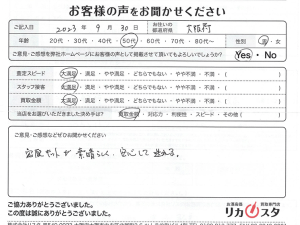 お客様の声をお聞かせください
ご記入日 2023年9月30日 お住いの都道府県 大阪府
年齢 20代・30代・40代・50代・60代・70代・80代〜 性別 男・女
ご意見・ご感想を弊社ホームページにお客様の声として掲載させて頂いてもよろしいでしょうか? Yes・No
査定スピード 大満足・満足・やや満足・どちらでもない・やや不満・不満・(
スタッフ接客 大満足・満足・やや満足・どちらでもない・やや不満・不満・(
買取金額 大満足・満足・やや満足・どちらでもない・やや不満・不満・(
当店をお選びいただきました決め手は? 買取金額・対応力・利便性・スピード・その他(
ご意見・ご感想などぜひお聞かせください
宅配キットが素晴らしく、安心して送れる。
ご協力ありがとうございました。
この度は誠にありがとうございました。
お酒買取専門店
リカスタ